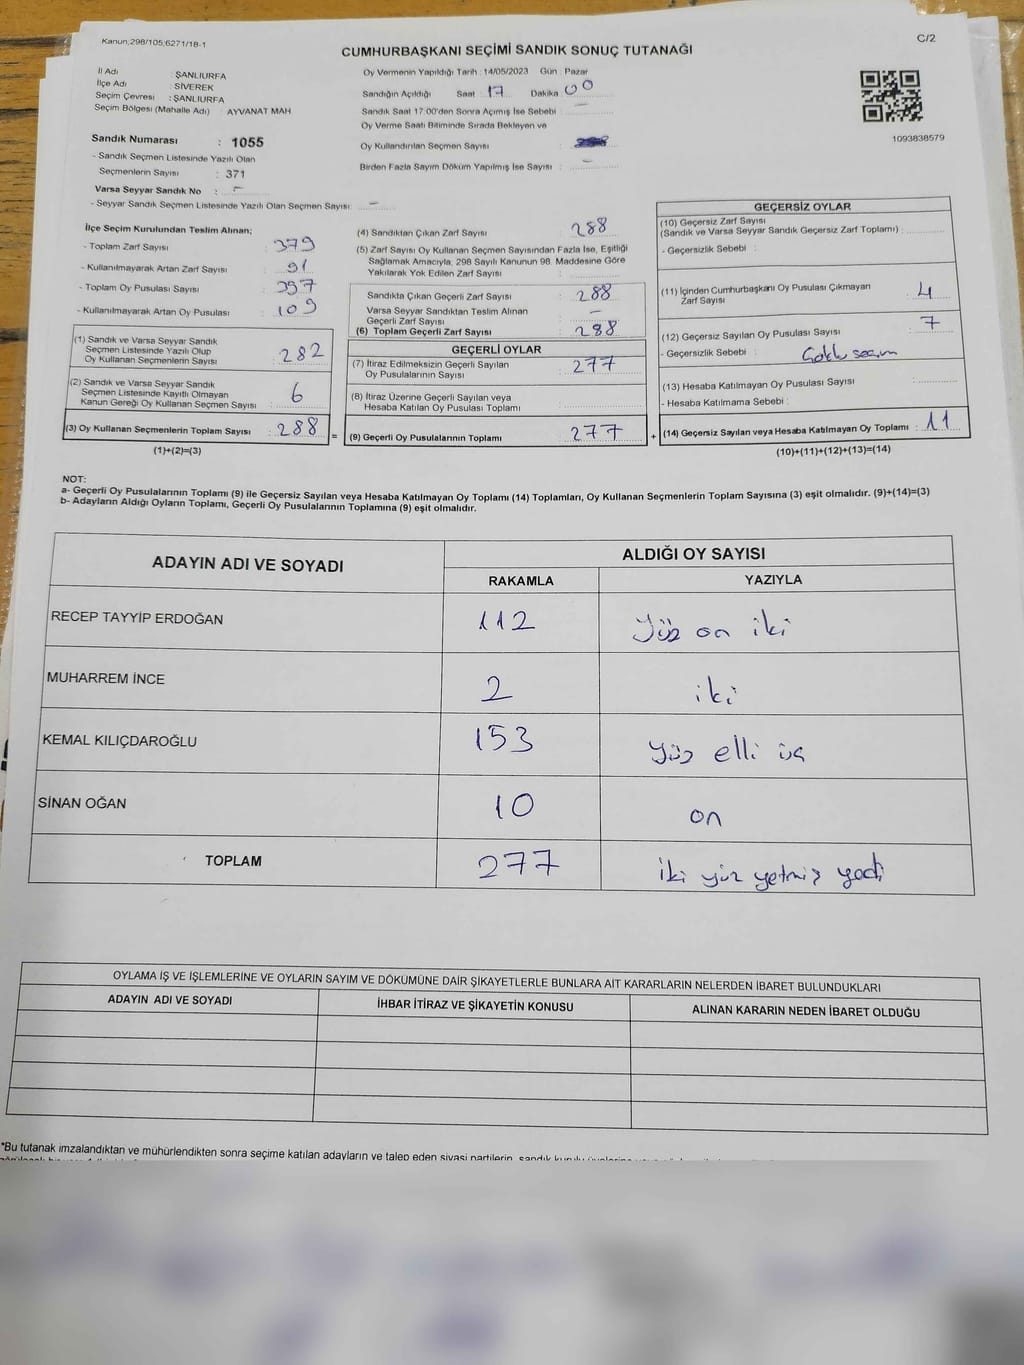 Kanun;298/105;6271/18-1
C/2
CUMHURBAŞKANI SEÇİMİ SANDIK SONUÇ TUTANAĞI
İl Adı : ŞANLIURFA
İlçe Adı : SİVEREK
Seçim Çevresi : ŞANLIURFA
Seçim Bölgesi (Mahalle Adı) : AYVANAT MAH
Sandık Numarası : 1055
- Sandık Seçmen Listesinde Yazılı Olan
Seçmenlerin Sayısı : 371
Varsa Seyyar Sandık No : -
- Seyyar Sandık Seçmen Listesinde Yazılı Olan Seçmen Sayısı: -
Oy Vermenin Yapıldığı Tarih : 14/05/2023 Gün : Pazar
Sandığın Açıldığı Saat 17 Dakika 00
Sandık Saat 17:00'den Sonra Açımış İse Sebebi : -
Oy Verme Saati Bitiminde Sırada Bekleyen ve
Oy Kullandırılan Seçmen Sayısı :
Birden Fazla Sayım Döküm Yapılmış İse Sayısı : -
1093838579
İlçe Seçim Kurulundan Teslim Alınan;
- Toplam Zarf Sayısı : 379
- Kullanılmayarak Artan Zarf Sayısı : 91
- Toplam Oy Pusulası Sayısı : 397
- Kullanılmayarak Artan Oy Pusulası : 109
(1) Sandık ve Varsa Seyyar Sandık
Seçmen Listesinde Yazılı Olup
Oy Kullanan Seçmenlerin Sayısı : 282
(2) Sandık ve Varsa Seyyar Sandık
Seçmen Listesinde Kayıtlı Olmayan
Kanun Gereği Oy Kullanan Seçmen Sayısı : 6
(3) Oy Kullanan Seçmenlerin Toplam Sayısı : 288
(1)+(2)=(3)
(4) Sandıktan Çıkan Zarf Sayısı : 288
(5) Zarf Sayısı Oy Kullanan Seçmen Sayısından Fazla İse, Eşitliği
Sağlamak Amacıyla, 298 Sayılı Kanunun 98. Maddesine Göre
Yakılarak Yok Edilen Zarf Sayısı :
Sandıkta Çıkan Geçerli Zarf Sayısı : 288
Varsa Seyyar Sandıktan Teslim Alınan
Geçerli Zarf Sayısı : -
(6) Toplam Geçerli Zarf Sayısı : 288
GEÇERLİ OYLAR
(7) İtiraz Edilmeksizin Geçerli Sayılan
Oy Pusulalarının Sayısı : 277
(8) İtiraz Üzerine Geçerli Sayılan veya
Hesaba Katılan Oy Pusulası Toplamı :
= (9) Geçerli Oy Pusulalarının Toplamı : 277 +
GEÇERSİZ OYLAR
(10) Geçersiz Zarf Sayısı
(Sandık ve Varsa Seyyar Sandık Geçersiz Zarf Toplamı) :
- Geçersizlik Sebebi :
(11) İçinden Cumhurbaşkanı Oy Pusulası Çıkmayan
Zarf Sayısı : 4
(12) Geçersiz Sayılan Oy Pusulası Sayısı : 7
- Geçersizlik Sebebi : Çoklu seçim
(13) Hesaba Katılmayan Oy Pusulası Sayısı :
- Hesaba Katılmama Sebebi :
(14) Geçersiz Sayılan veya Hesaba Katılmayan Oy Toplamı : 11
(10)+(11)+(12)+(13)=(14)
NOT:
a- Geçerli Oy Pusulalarının Toplamı (9) ile Geçersiz Sayılan veya Hesaba Katılmayan Oy Toplamı (14) Toplamları, Oy Kullanan Seçmenlerin Toplam Sayısına (3) eşit olmalıdır. (9)+(14)=(3)
b- Adayların Aldığı Oyların Toplamı, Geçerli Oy Pusulalarının Toplamına (9) eşit olmalıdır.
ADAYIN ADI VE SOYADI
ALDIĞI OY SAYISI
RAKAMLA YAZIYLA
RECEP TAYYİP ERDOĞAN 112 Yüz on iki
MUHARREM İNCE 2 iki
KEMAL KILIÇDAROĞLU 153 Yüz elli üç
SİNAN OĞAN 10 on
TOPLAM 277 iki yüz yetmiş yedi
OYLAMA İŞ VE İŞLEMLERİNE VE OYLARIN SAYIM VE DÖKÜMÜNE DAİR ŞİKAYETLERLE BUNLARA AİT KARARLARIN NELERDEN İBARET BULUNDUKLARI
ADAYIN ADI VE SOYADI İHBAR İTİRAZ VE ŞİKAYETİN KONUSU ALINAN KARARIN NEDEN İBARET OLDUĞU
*Bu tutanak imzalandıktan ve mühürlendikten sonra seçime katılan adayların ve talep eden siyasi partilerin, sandık kurulu